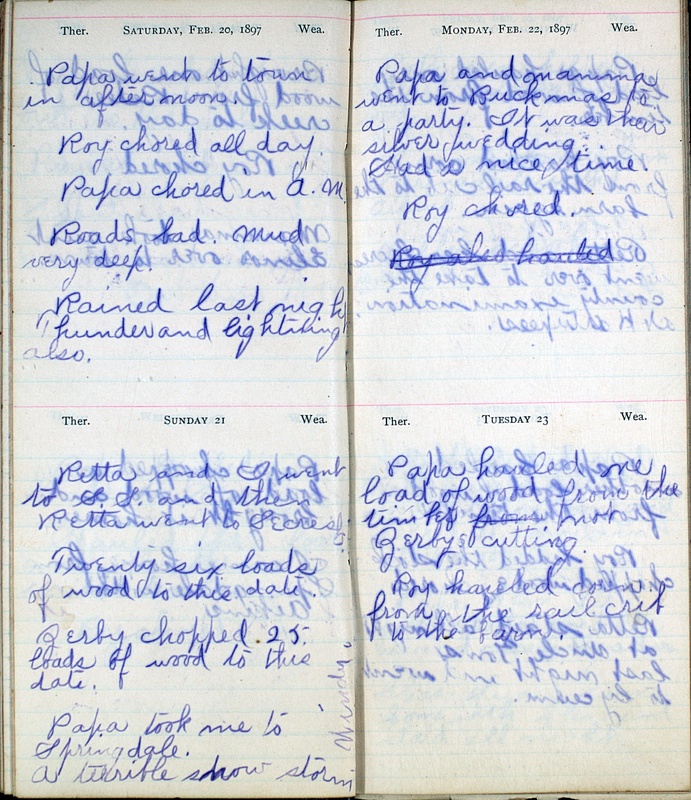 Ther. SATURDAY, FEB. 20, 1897 Wea.
Papa went to town
in afternoon.
Roy chored all day
Papa chored in a.m.
Roads bad. Mud
very deep.
Rained last nigh
Thunder and lightning
also.
Ther. SUNDAY 21 Wea.
Retta and I went
to S.S. and then
Retta went to Secrest
Twenty six loads
of wood to this date.
Zerby chopped 25
loads of wood to this
date.
Papa took me to
Springdale.
a terrible snow storm
Windy.
Ther. MONDAY, FEB. 22, 1897 Wea.
Papa and mamma
went to Buckmas to
a party. It was their
silver wedding.
Had a nice time.
Roy chored.
Roy also hauled
Ther. TUESDAY 23 Wea.
Papa hauled one
load of wood from the
timber from. not
Zerbys cutting.
Roy hauled corn
from the rail crib
to the barn.